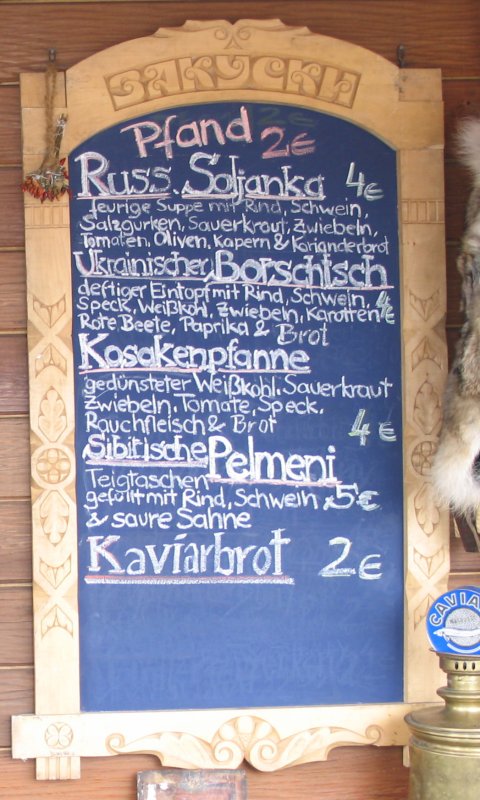 ЗАКУСКИ
Pfand 2€
Russ. Soljanka 4€
feurige Suppe mit Rind, Schwein,
Salzgurken, Sauerkraut, Zwiebeln,
Tomaten, Oliven, Kapern & Korianderbrot
Ukrainischer Borschtsch
deftiger Eintopf mit Rind, Schwein, 4€
Speck, Weißkohl, Zwiebeln, Karotten
Rote Beete, Paprika & Brot
Kosakenpfanne
gedünsteter Weißkohl, Sauerkraut
Zwiebeln, Tomate, Speck,
Rauchfleisch & Brot 4€
Sibirische Pelmeni
Teigtaschen
gefüllt mit Rind, Schwein 5€
& saure Sahne
Kaviarbrot 2€
CAVIA